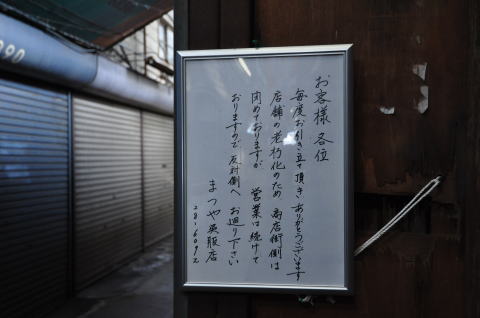 お客様 各位
毎度お引き立て頂き ありがとうございます
店舗の老朽化のため 商店街側は
閉めておりますが 営業は続けて
おりますので、反対側へ お廻り下さい
まつや呉服店
28-6092
090